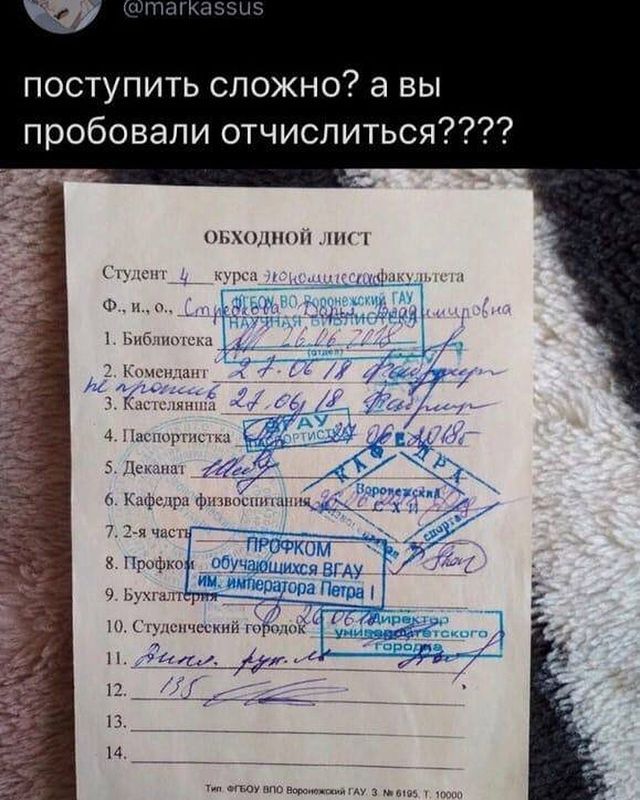 @markassus
поступить сложно? а вы
пробовали отчислиться????
ОБХОДНОЙ ЛИСТ
Студент 4 курса экономического факультета
Ф., и., о., Владимировна
ФГБОУ ВО Воронежский ГАУ
НАУЧНАЯ БИБЛИОТЕКА
1. Библиотека 26.06.2018
(отдел)
2. Комендант 27.06.18
не против
3. Кастелянша 27.06.18
4. Паспортистка ВГАУ
5. Деканат
КАФЕДРА
6. Кафедра физвоспитания
Воронежский
СХИ
спорта
7. 2-я часть
ПРОФКОМ
8. Профком обучающихся ВГАУ
им. императора Петра I
9. Бухгалтерия
10. Студенческий городок 26.06.18 Директор
университетского
городка
11. рук.
12. 135
13.
14.
Тип. ФГБОУ ВПО Воронежский ГАУ. З. № 6195. Т. 10000